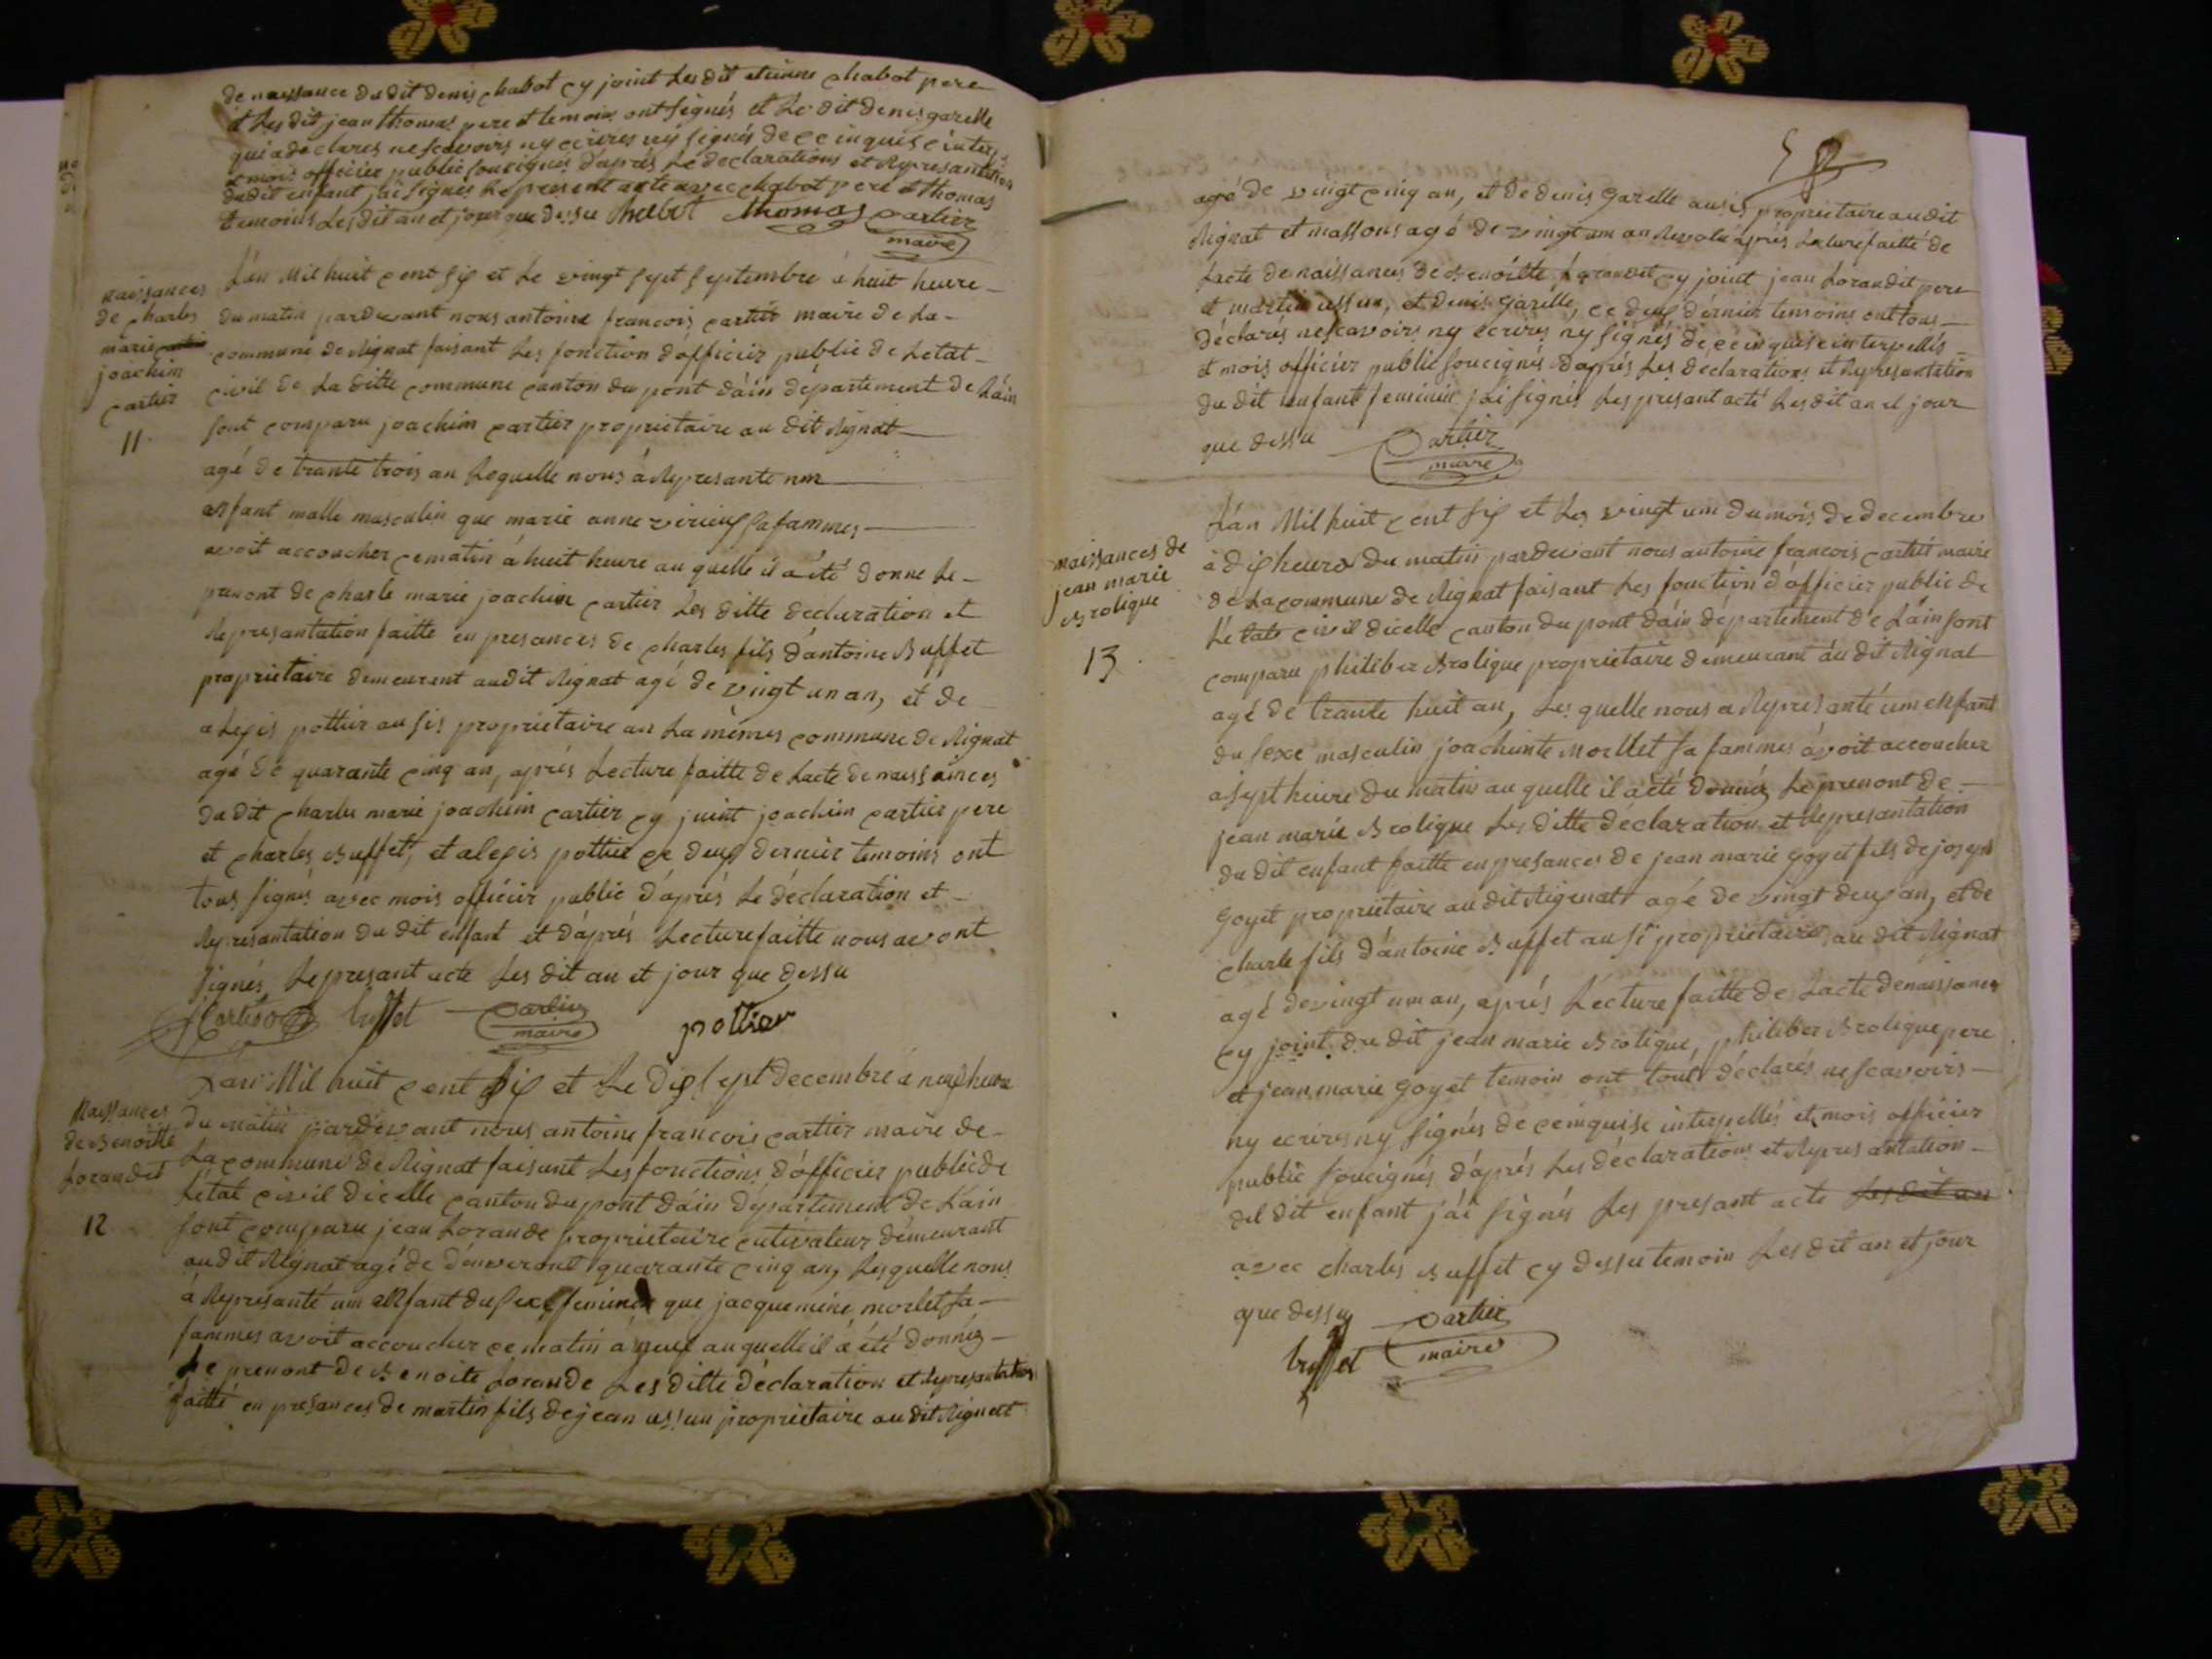 de naissance du dit denis chabot cy joint Les dit etienne chabot pere
et Les dit jean thomas pere et temoin ont signés et Le dit denis garelle
qui a déclares ne scavoirs ny ecrires ny signés de ce inquis e interp
et mois officier public soucignés d'aprés Le declarations et Represantation
du dit enfant j'ai signés Le present acte avec chabot pere et thomas
temoins Les dit an et jour que dessu chabot thomas cartier
maire
naissances
de charles
marie
joachim
cartier
11
L'an Mil huit cent six et Le vingt sept septembre à huit heure
du matin pardevant nous antoine francois cartier maire de La
commune de Rignat faisant Les fonction d'officier public de Letat
civil de La ditte commune canton du pont dáin département de Láin
sont comparu joachim cartier proprietaire au dit Rignat
agé de trante trois an Lequelle nous à Represante un
enfant malle masculin que marie anne virieux sa fammes
avoit accoucher ce matin à huit heure au quelle il a été donne Le
prenont de charle marie joachim cartier Les ditte declaration et
Represantation faitte en presances de charles fils d'antoine Buffet
proprietaire demeurent audit Rignat agé de vingt un an, et de
alexis pottier ausis proprietaire an La mêmes commune de Rignat
agé de quarante cinq an, aprés Lecture faitte de Lacte de naissances
du dit charles marie joachim cartier cy joint joachim cartier pere
et charles Buffet, et alexis pottier ce deux dernier temoins ont
tous signés avec mois officier public d'aprés Le déclaration et
Represantation du dit enfant et d'aprés Lecture faitte nous avont
signés Le presant acte Les dit an et jour que dessu
Cartier buffet cartier pottier
maire
Naissances
de Benoitte
Lorandet
12
L'an Mil huit cent six et Le dix sept decembre à neuf heure
du matin pardevant nous antoine francois cartier maire de
La commune de Rignat faisant Les fonctions d'officier public de
L'état civil dicelle canton du pont dáin département de L'ain
sont comparu jean Lorande proprietaire cutivateur demeurant
au dit Rignat agé de d'anveront quarante cinq an, Lesquelle nous
à Represanté um enfant du sexe feminin que jacquemine morlet sa
fammes avoit accoucher ce matin à neuf auquelle il à été donnéz
Le prenont de Benoite Lorande Les ditte déclaration et Represantation
faitté en presances de martin fils de jean ussun proprietaire au dit Rignat
agé de vingt cinq an, et de denis garelle ausis proprietaire au dit
Rignat et massons agé de vingt um an Revolu aprés Lecture faitté de
Lacte de naissances de Benoitte Lorandet cy joint jean Lorandit pere
et martin ussun, et denis garélle, ce deux dérnier temoins ont tous
déclarés ne scavoirs ny écrires ny signés de ce inquis e interpellés
et mois officier public soucignés d'aprés Les déclarations et Represantation
du dit enfant feminin j'ai signés Les presant acté Les dit an et jour
que dessu Cartier
maire
naissances de
jean marie
Brolique
13
L'án Mil huit cent six et Les vingt um du mois de decembre
à dix heures du matin pardevant nous antoine francois cartier maire
de La commune de Rignat faisant Les fonction d'officier public de
Létats civil dicelle canton du pont d'ain département de L'ain sont
comparu philiber Brolique proprietaire demeurant áu dit Rignat
agé de trante huit an, Lesquelle nous a Represanté um enfant
du sexe masculin joachimte Morllet sa fammes avoit accoucher
a sept heure du matin au quelle il a été donnéz Le prenont de
jean marie Brolique Les ditte déclaration et Represantation
du dit enfant faitte en presances de jean marie goyet fils de joseph
goyet proprietaire au dit Rignat agé de vingt deux an, et de
charle fils d'antoine Buffet ausi proprietaire au dit Rignat
agé de vingt um an, aprés Lécture faitte de Lacte de naissances
cy joint du dit jean marie Brolique, philiber Brolique pere
et jean marie goyet temoin ont tous déclarés ne scavoirs
ny ecrires ny signés de ce inquise interpellés et mois officier
public soucignés d'aprés Les déclarations et Represantation
del dit enfant j'ái signés Les presant acte Les dit an
avec charles Buffet cy dessu temoin Les dit an et jour
que dessu cartier
buffet maire